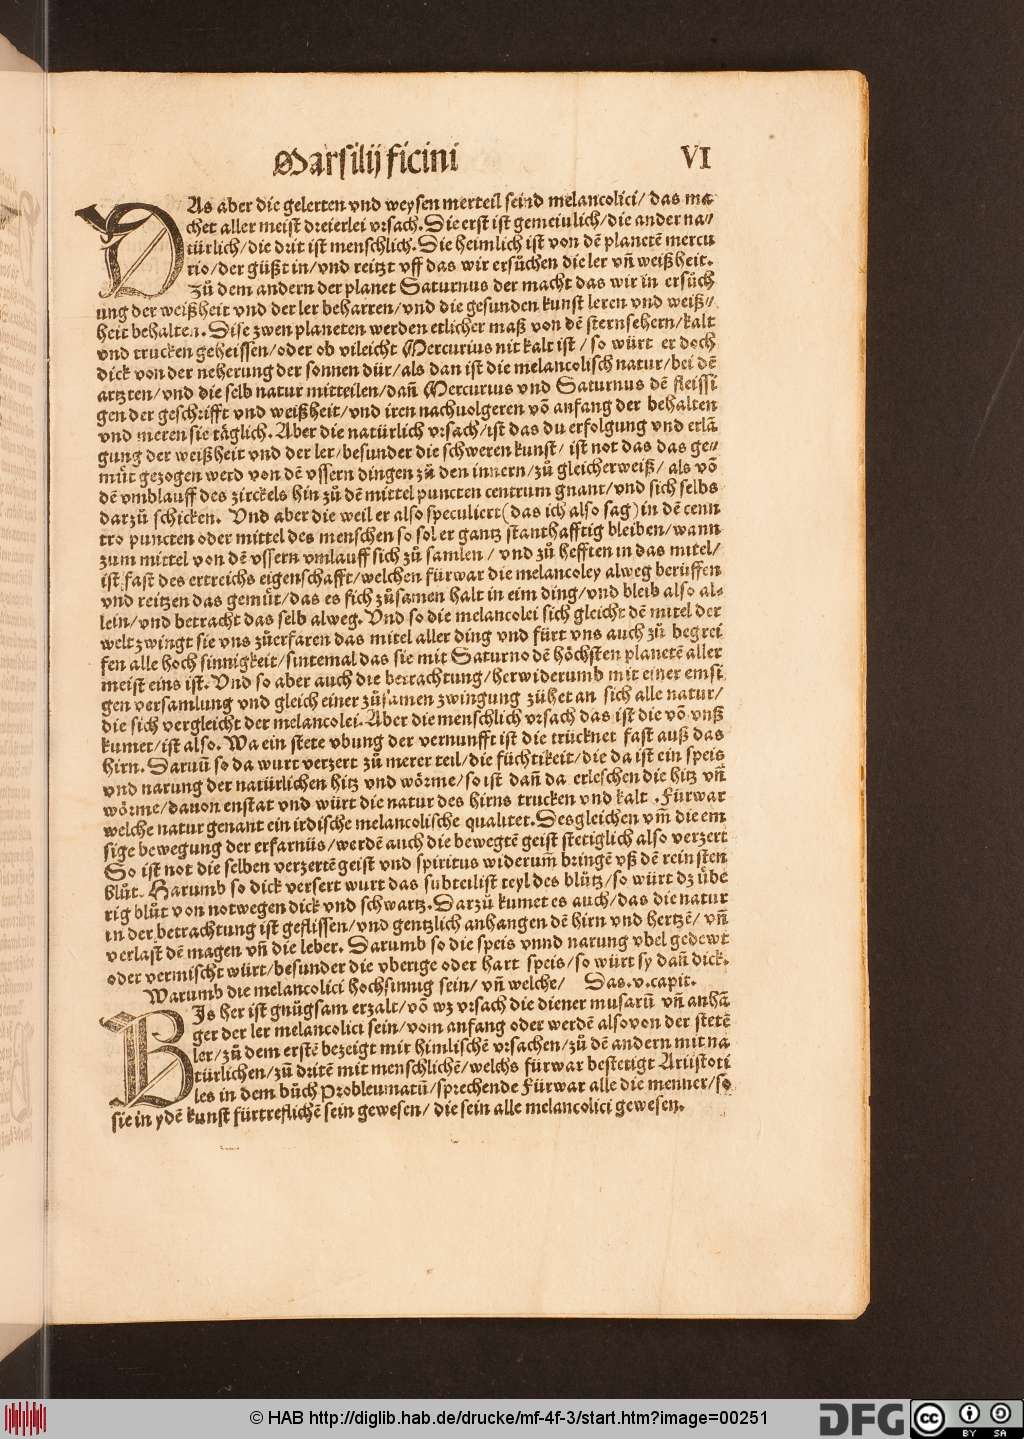 Marsilij ficini
VI
DAs aber die gelerten vnd weysen merteil seind melancolici/ das ma
chet aller meist dreierlei vrsach. Die erst ist gemeinlich/die ander na//
türlich/die drit ist menschlich. Die heimlich ist von dē planetē mercu
rio/der güßt in/vnd reitzt vff das wir ersůchen die ler vñ weißheit.
Zů dem andern der planet Saturnus der macht das wir in ersůch
ung der weißheit vnd der ler beharren/vnd die gesunden kunst leren vnd weiß//
heit behalten. Dise zwen planeten werden etlicher maß von dē sternsehern/kalt
vnd trucken geheissen/oder ob vileicht Mercurius nit kalt ist/ so würt er doch
dick von der neherung der sonnen dür/als dan ist die melancolisch natur/bei dē
artzten/vnd die selb natur mitteilen/dañ Mercurius vnd Saturnus dē fleissi
gen der geschrifft vnd weißheit/vnd iren nachuolgeren vō anfang der behalten
vnd meren sie täglich. Aber die natürlich vrsach/ist das du erfolgung vnd erlā
gung der weißheit vnd der ler/besunder die schweren kunst/ ist not das das ge//
můt gezogen werd von dē vssern dingen zů den innern/zů gleicherweiß/ als vō
dē vmblauff des zirckels hin zů dē mittel puncten centrum gnant/vnd sich selbs
darzů schicken. Vnd aber die weil er also speculiert(das ich also sag)in dē cenn
tro puncten oder mittel des menschen so sol er gantz stanthafftig bleiben/wann
zum mittel von dē vssern vmlauff sich zů samlen/ vnd zů hefften in das mitel/
ist fast des ertreichs eigenschafft/welchen fürwar die melancoley alweg berüffen
vnd reitzen das gemůt/das es sich zůsamen halt in eim ding/vnd bleib also al-
lein/vnd betracht das selb alweg. Vnd so die melancolei sich gleicht dē mitel der
welt zwingt sie vns zůerfaren das mitel aller ding vnd fürt vns auch zů begrei
fen alle hoch sinnigkeit/sintemal das sie mit Saturno dē höchsten planetē aller
meist eins ist. Vnd so aber auch die betrachtung/herwiderumb mit einer emsi
gen versamlung vnd gleich einer zůsamen zwingung zühet an sich alle natur/
die sich vergleicht der melancolei. Aber die menschlich vrsach das ist die vō vnß
kumet/ist also. Wa ein stete vbung der vernunfft ist die trücknet fast auß das
hirn. Darum̄ so da wurt verzert zů merer teil/die füchtikeit/die da ist ein speis
vnd narung der natürlichen hitz vnd wörme/so ist dañ da erleschen die hitz vñ
wörme/dauon enstat vnd würt die natur des hirns trucken vnd kalt .Fürwar
welche natur genant ein irdische melancolische qualitet. Desgleichen vm̄ die em
sige bewegung der erfarnüs/werdē auch die bewegtē geist stetiglich also verzert
So ist not die selben verzertē geist vnd spiritus widerum̄ bringē vß dē reinsten
blůt. Harumb so dick versert wurt das subteilist teyl des blůtz/so würt dz übe
rig blůt von notwegen dick vnd schwartz. Darzů kumet es auch/das die natur
in der betrachtung ist geflissen/vnd gentzlich anhangen dē hirn vnd hertzē/ vñ
verlaßt dē magen vñ die leber. Darumb so die speis vnnd narung vbel gedewt
oder vermischt würt/besunder die vberige oder hart speis/so würt sy dañ dick.
Warumb die melancolici hochsinnig sein/ vñ welche/ Das.v.capit.
BIs her ist gnůgsam erzalt/vō wz vrsach die diener musarū vñ anhā
ger der ler melancolici sein/vom anfang oder werdē also von der stetē
ler/zů dem erstē bezeigt mit himlischē vrsachen/zů dē andern mit na
türlichen/zů dritē mit menschlichē/welchs fürwar bestetigt Aristoti
les in dem bůch Probleumatū/sprechende Fürwar alle die menner/so
sie in ydē kunst fürtreflichē sein gewesen/ die sein alle melancolici gewesen.
© HAB http://diglib.hab.de/drucke/mf-4f-3/start.htm?image=00251
DFG
cc BY SA